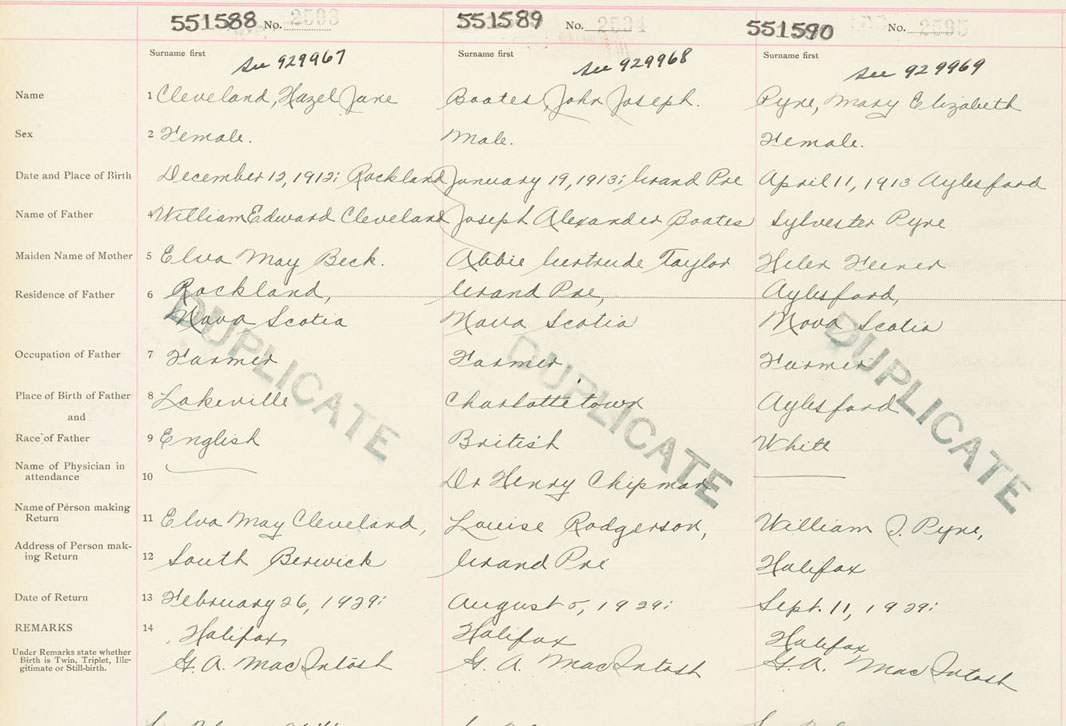 551588 No. 2593 551589 No. 2594 551590 No. 2595
Surname first Surname first Surname first
See 929967 See 929968 See 929969
Name 1 Cleveland, Hazel Jane Boates, John Joseph. Pyne, Mary Elizabeth
Sex 2 Female. Male. Female.
Date and Place of Birth December 12, 1912; Rockland January 19, 1913; Grand Pre April 11, 1913 Aylesford
Name of Father 4 William Edward Cleveland Joseph Alexander Boates Sylvester Pyne
Maiden Name of Mother 5 Elva May Beck. Abbie Gertrude Taylor Helen
Residence of Father 6 Rockland, Grand Pre, Aylesford,
Nova Scotia Nova Scotia Nova Scotia
Occupation of Father 7 Farmer Farmer Farmer
Place of Birth of Father 8 Lakeville Charlottetown Aylesford
and
Race of Father 9 English British White
DUPLICATE DUPLICATE DUPLICATE
Name of Physician in
attendance 10 Dr Henry Chipman
Name of Person making
Return 11 Elva May Cleveland, Louise Rodgerson, William J. Pyne,
Address of Person mak-
ing Return 12 South Berwick Grand Pre Halifax
Date of Return 13 February 26, 1929; August 5, 1929; Sept. 11, 1929;
REMARKS 14 Halifax Halifax Halifax
Under Remarks state whether
Birth is Twin, Triplet, Ille-
gitimate or Still-birth. G. A. MacIntosh G. A. MacIntosh G. A. MacIntosh